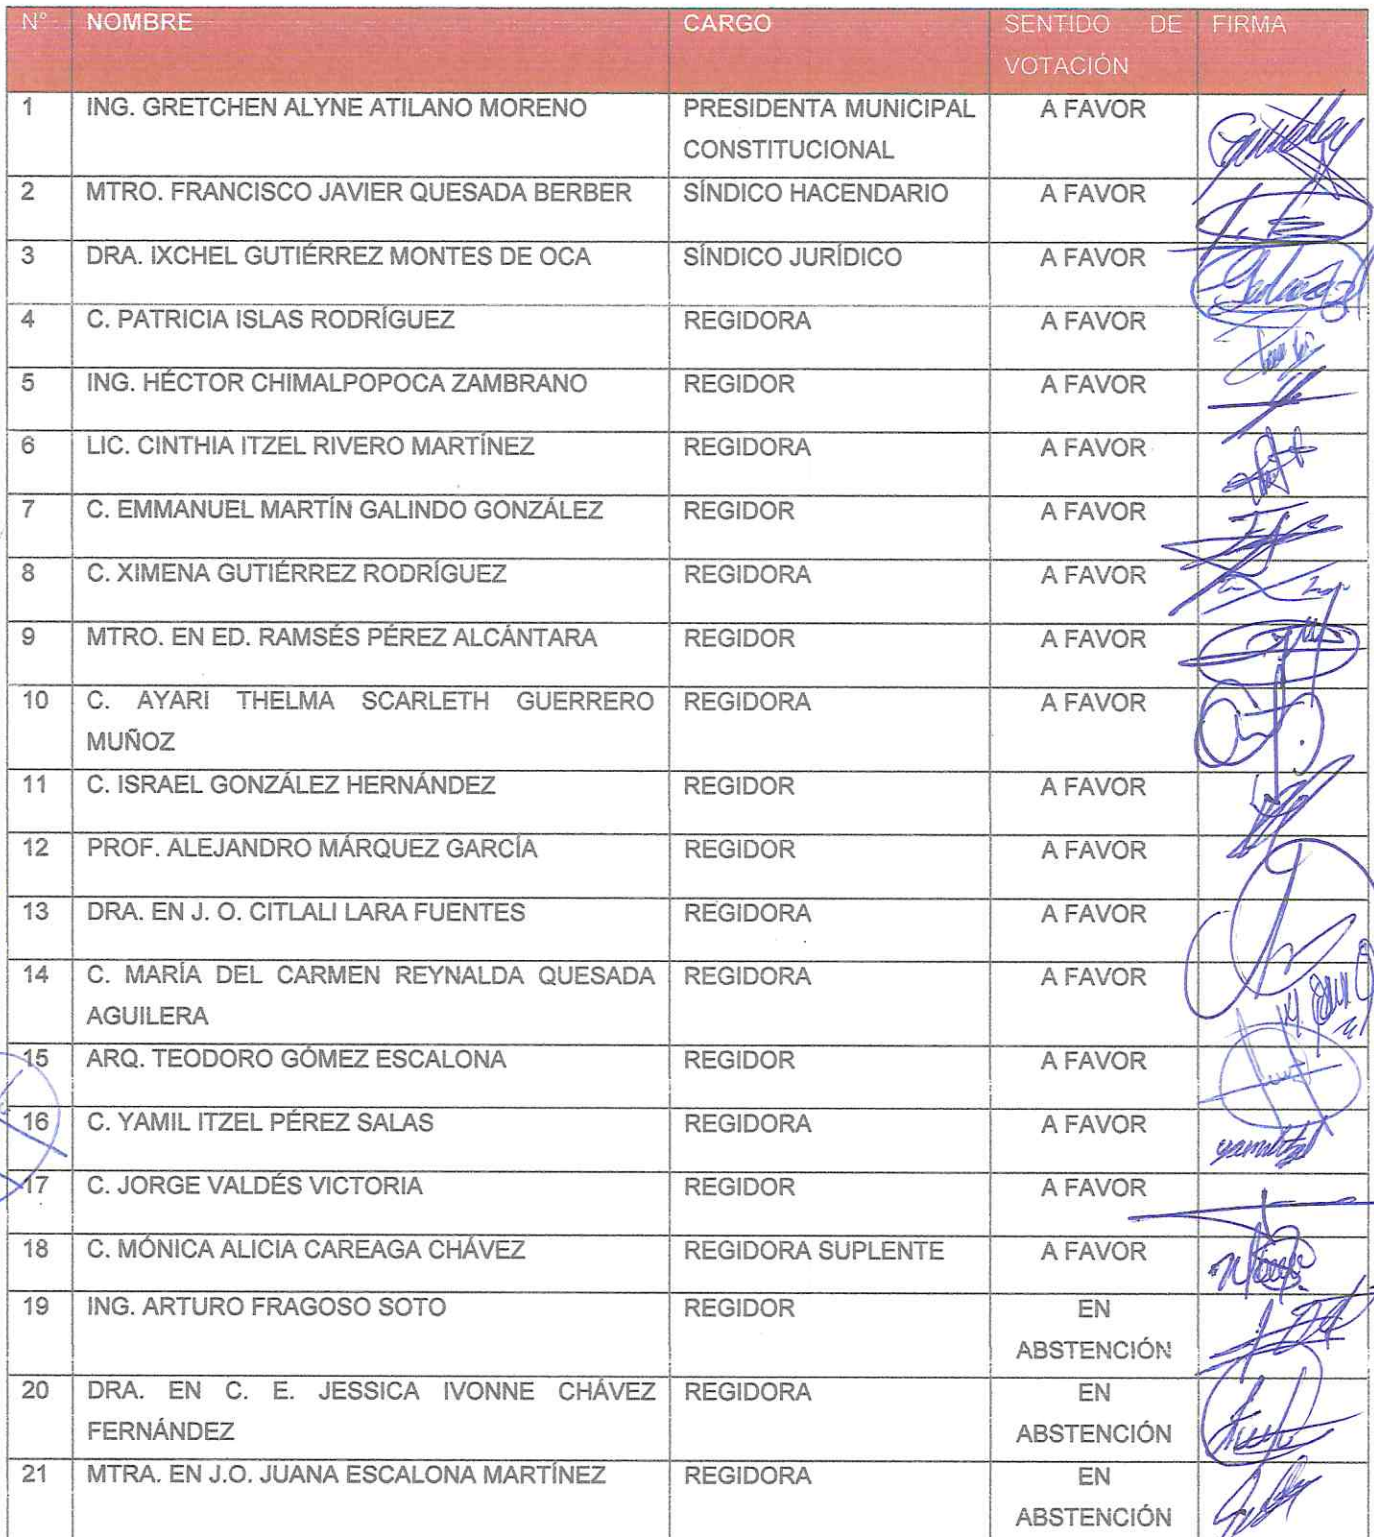 N° NOMBRE CARGO SENTIDO DE FIRMA
VOTACIÓN
1 ING. GRETCHEN ALYNE ATILANO MORENO PRESIDENTA MUNICIPAL A FAVOR
CONSTITUCIONAL
2 MTRO. FRANCISCO JAVIER QUESADA BERBER SÍNDICO HACENDARIO A FAVOR
3 DRA. IXCHEL GUTIÉRREZ MONTES DE OCA SÍNDICO JURÍDICO A FAVOR
4 C. PATRICIA ISLAS RODRÍGUEZ REGIDORA A FAVOR
5 ING. HÉCTOR CHIMALPOPOCA ZAMBRANO REGIDOR A FAVOR
6 LIC. CINTHIA ITZEL RIVERO MARTÍNEZ REGIDORA A FAVOR
7 C. EMMANUEL MARTÍN GALINDO GONZÁLEZ REGIDOR A FAVOR
8 C. XIMENA GUTIÉRREZ RODRÍGUEZ REGIDORA A FAVOR
9 MTRO. EN ED. RAMSÉS PÉREZ ALCÁNTARA REGIDOR A FAVOR
10 C. AYARI THELMA SCARLETH GUERRERO REGIDORA A FAVOR
MUÑOZ
11 C. ISRAEL GONZÁLEZ HERNÁNDEZ REGIDOR A FAVOR
12 PROF. ALEJANDRO MÁRQUEZ GARCÍA REGIDOR A FAVOR
13 DRA. EN J. O. CITLALI LARA FUENTES REGIDORA A FAVOR
14 C. MARÍA DEL CARMEN REYNALDA QUESADA REGIDORA A FAVOR
AGUILERA
15 ARQ. TEODORO GÓMEZ ESCALONA REGIDOR A FAVOR
16 C. YAMIL ITZEL PÉREZ SALAS REGIDORA A FAVOR
yamilitzel
17 C. JORGE VALDÉS VICTORIA REGIDOR A FAVOR
18 C. MÓNICA ALICIA CAREAGA CHÁVEZ REGIDORA SUPLENTE A FAVOR
19 ING. ARTURO FRAGOSO SOTO REGIDOR EN
ABSTENCIÓN
20 DRA. EN C. E. JESSICA IVONNE CHÁVEZ REGIDORA EN
FERNÁNDEZ ABSTENCIÓN
21 MTRA. EN J.O. JUANA ESCALONA MARTÍNEZ REGIDORA EN
ABSTENCIÓN